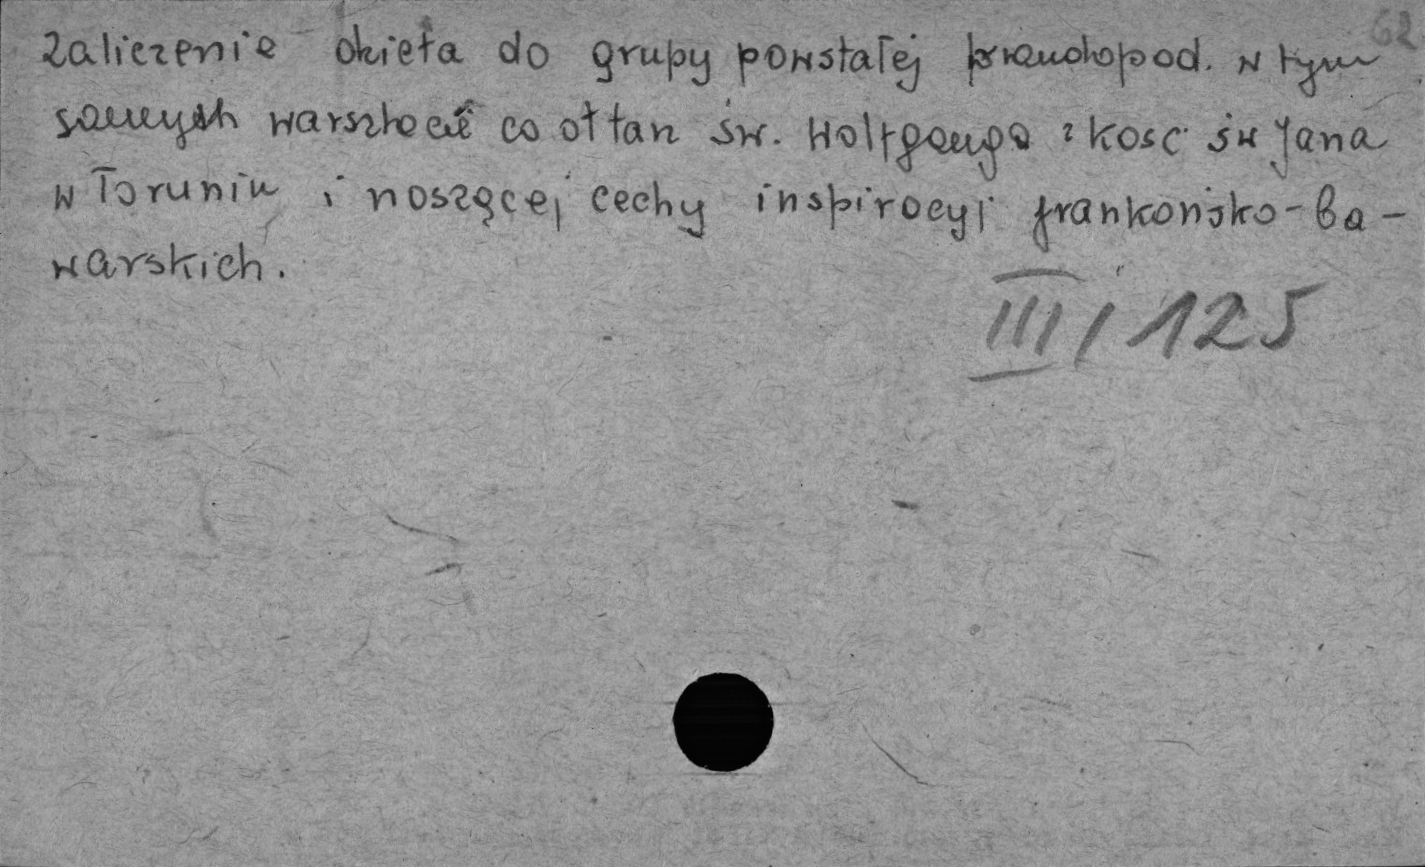 62
zaliczenie okieta do grupy powstałej prawdopod. w tym
samych warsztacie co ołtarz św. Wolfganga z kośc św Jana
w Toruniu i noszącej cechy inspiracyj frankońsko-ba-
warskich.
III/125